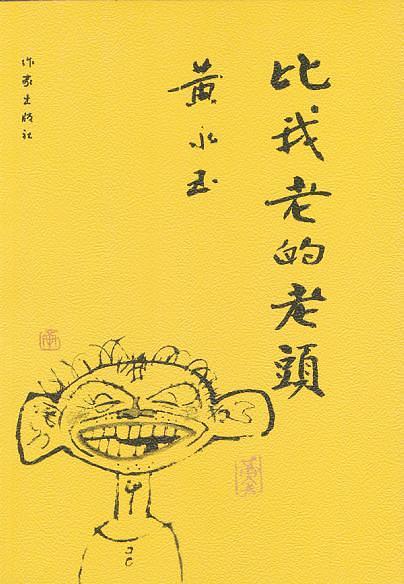 比我老的老頭
黄永玉
作家出版社